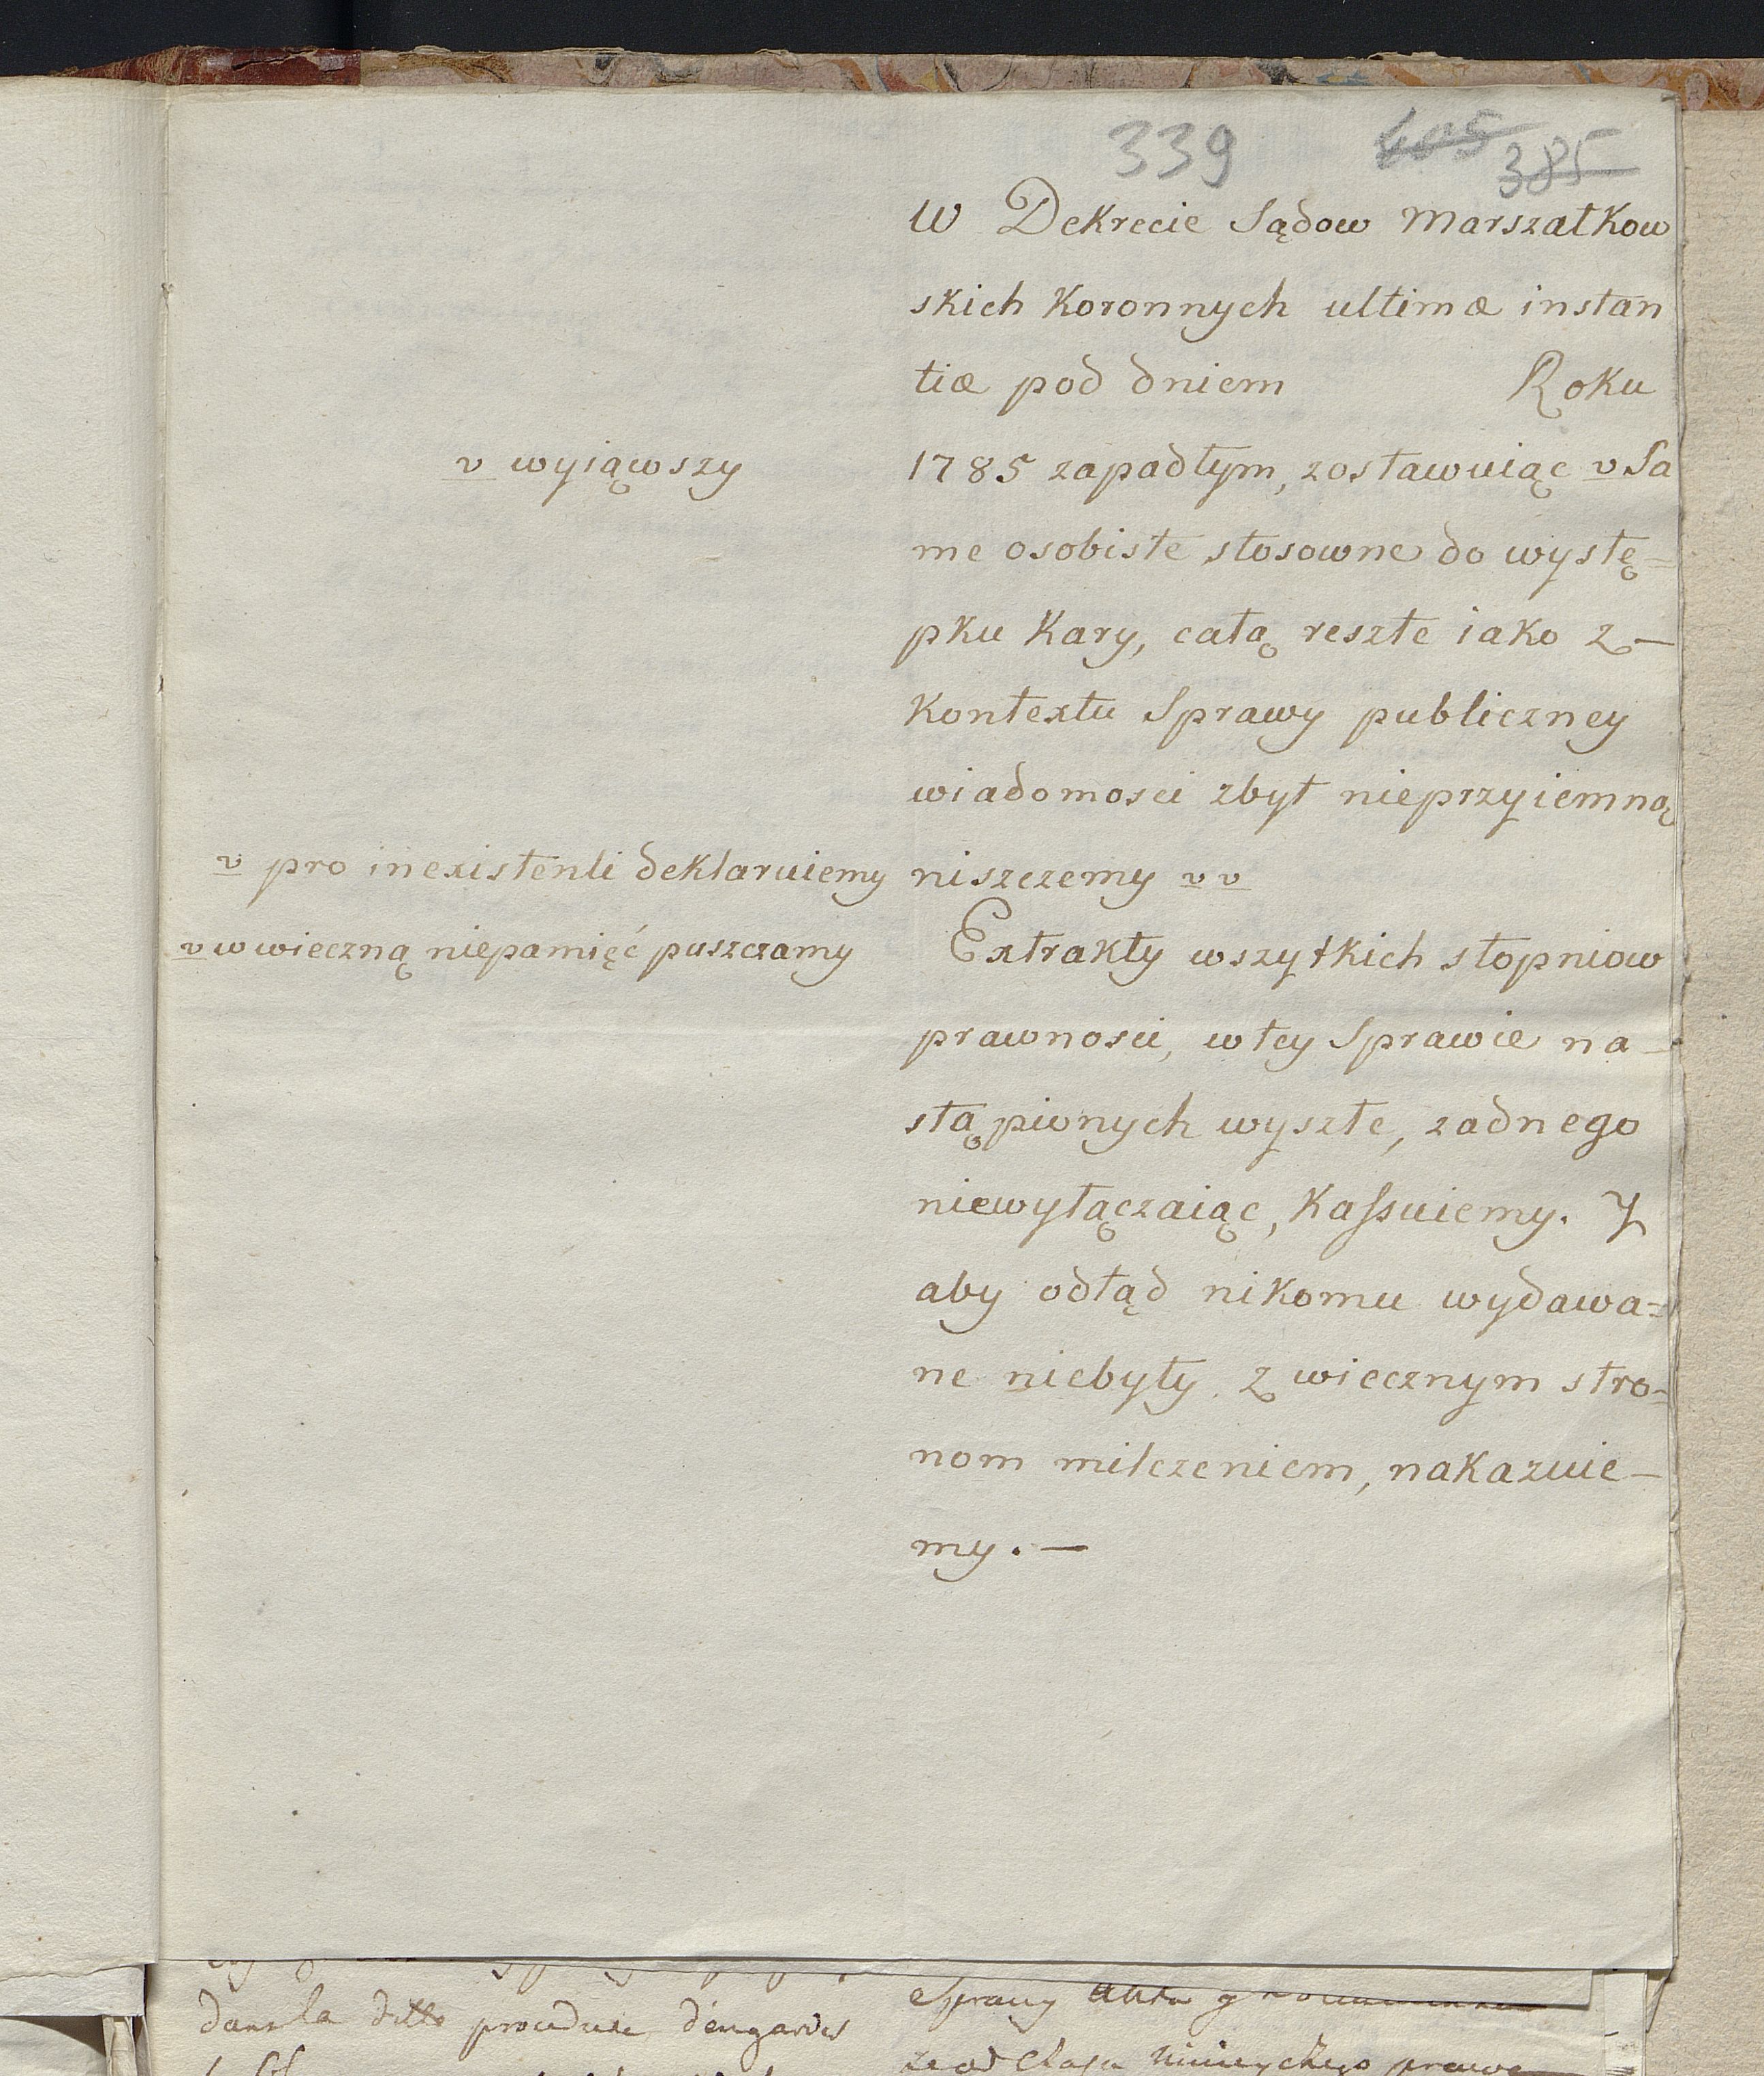 339 405 385
W Dekrecie Sądow Marszałkow
skich Koronnych ultimæ instan
tiæ pod dniem Roku
v wyiąwszy
1785 zapadłym, zostawuiąc v Sa
me osobiste stosowne do wystę=
pku Kary, całą reszte iako z—
Kontextu Sprawy publiczney
wiadomosci zbyt nieprzyiemną
v pro inexistenti deklaruiemy
niszczemy v v
v w wieczną niepamięć puszczamy
Extrakty wszytkich stopniow
prawnosci, w tey Sprawie na—
stąpionych wyszłe, zadnego
niewyłączaiąc, Kassuiemy. Y
aby odtąd nikomu wydawa=
ne niebyły z wiecznym stro=
nom milczeniem, nakazuie—
my.—
dans la ditte procedure d'engardes
Sprawy
prawa